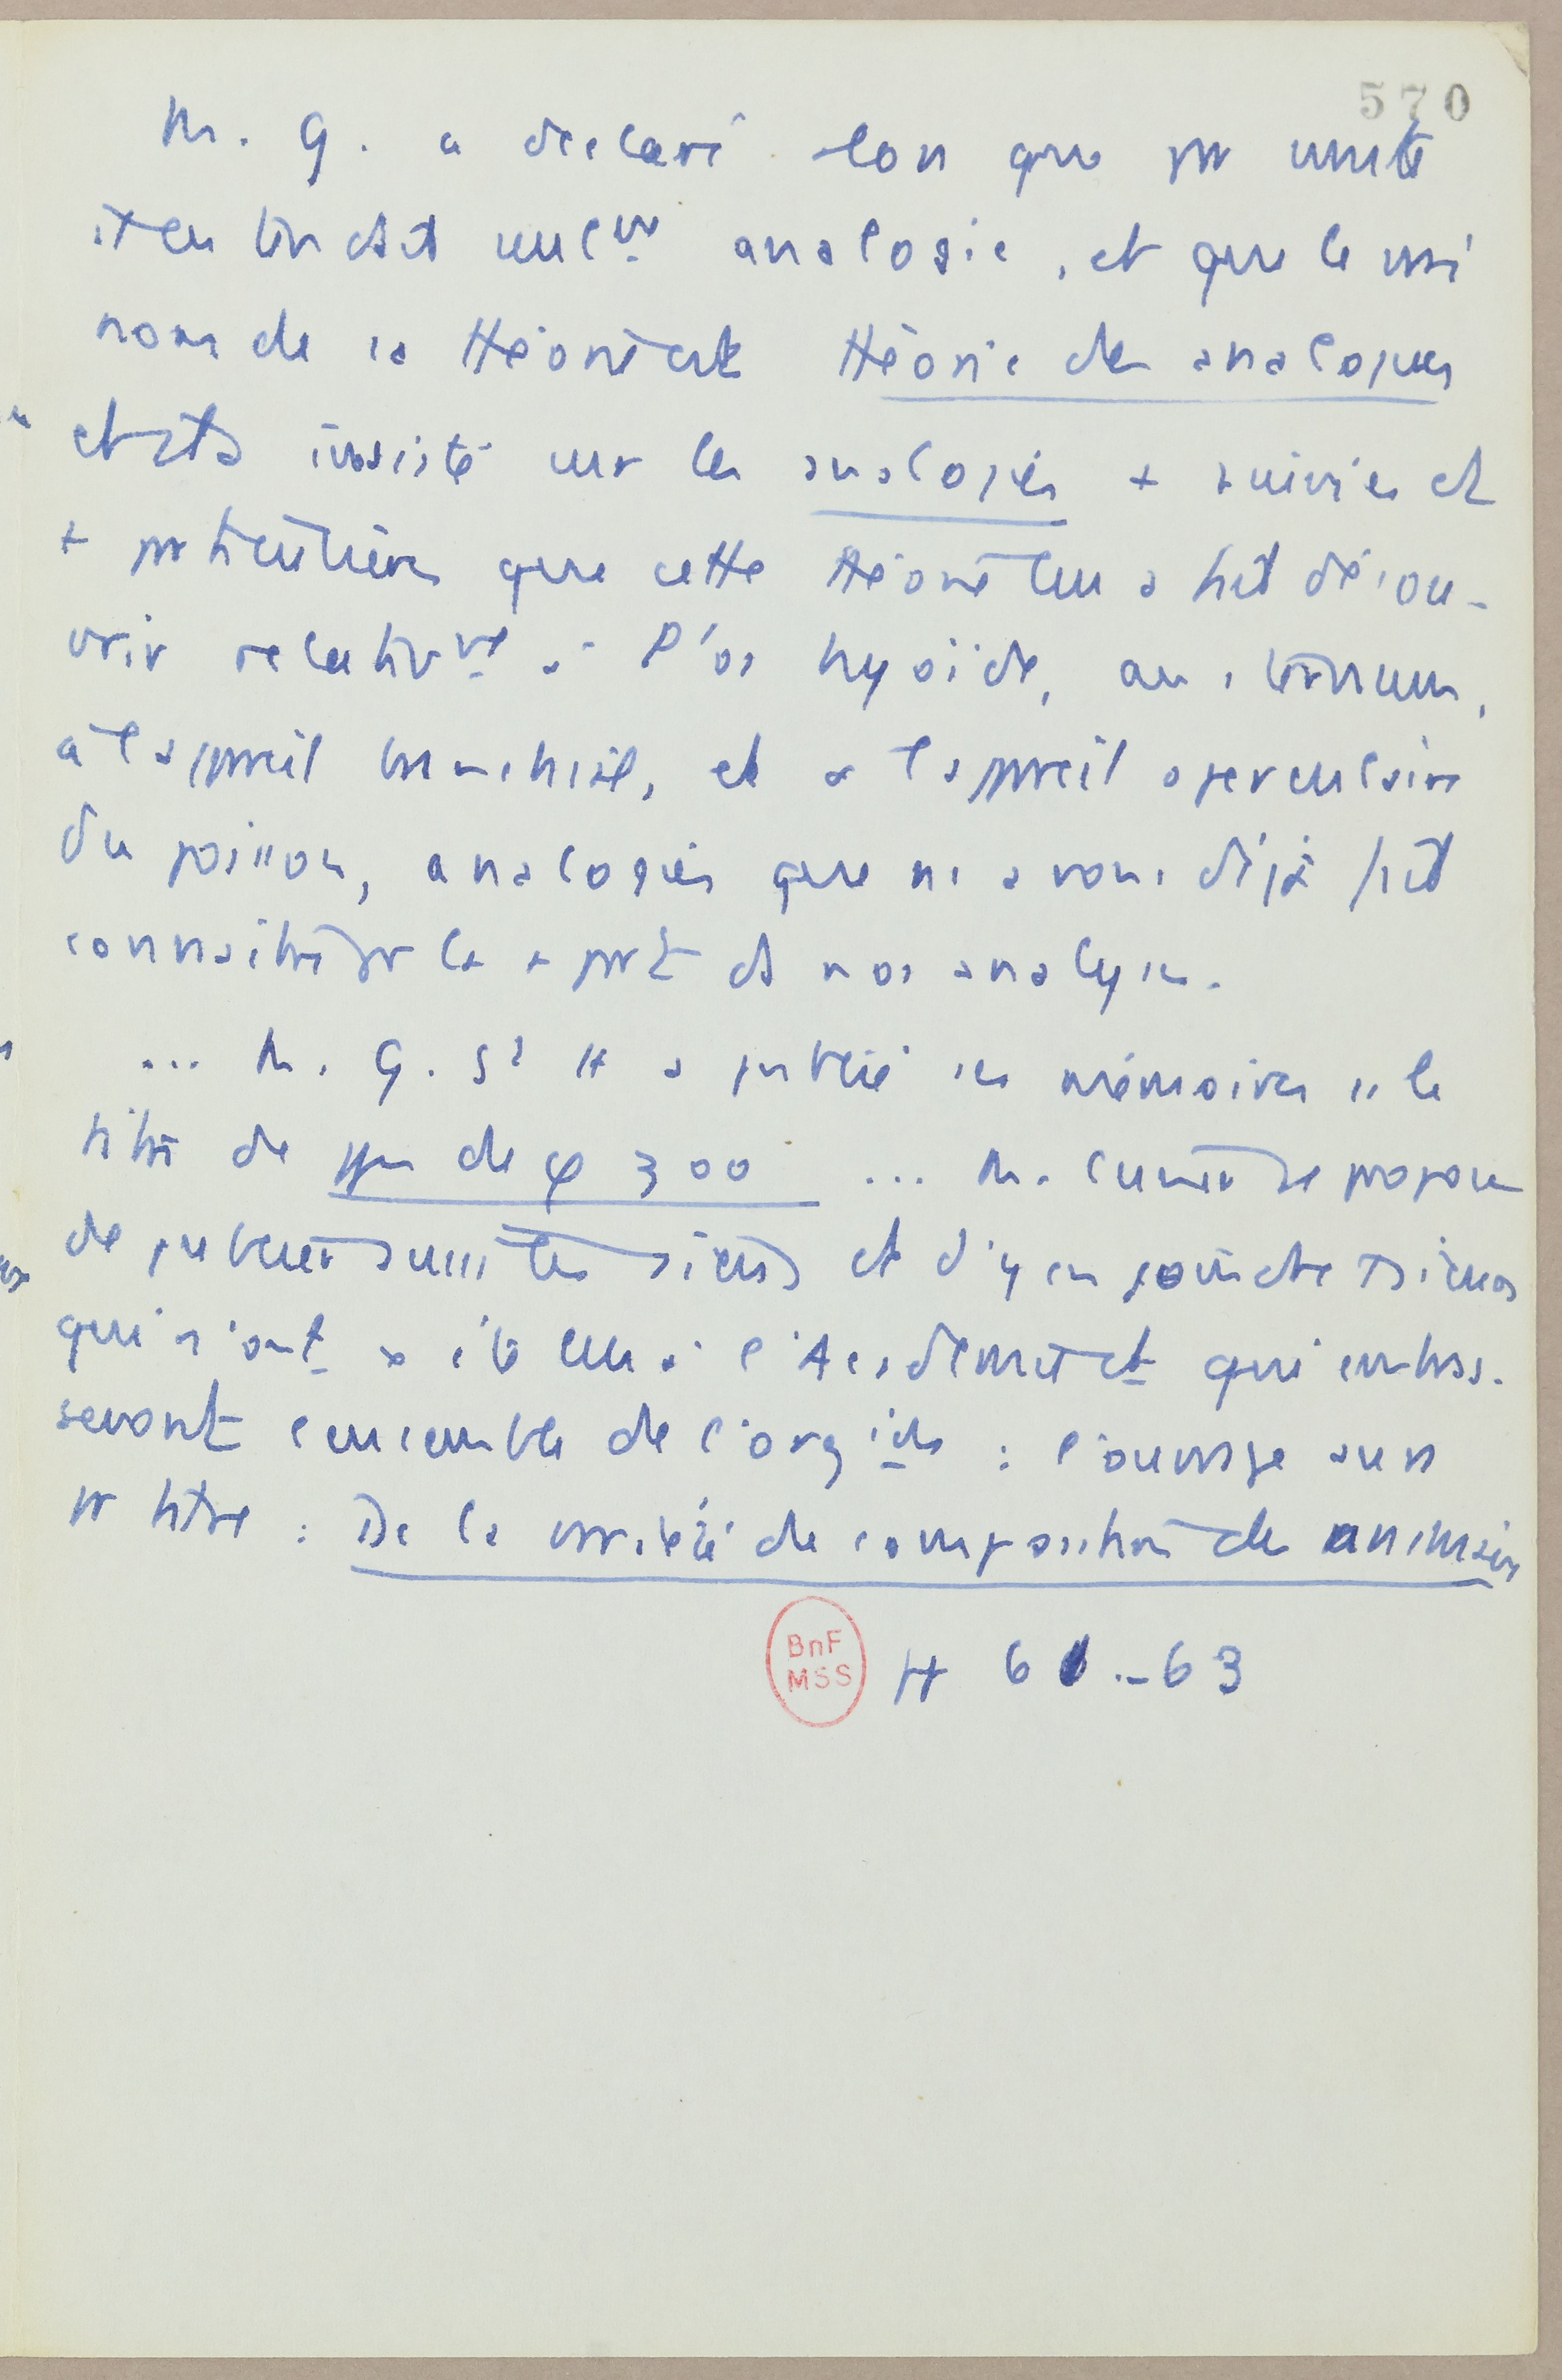 570
M. G. a déclaré alors que par unité
il entendait seulᵗ analogie, et que le vrai
nom de sa théorie est théorie des analogues
et il a insisté sur les analogies + suivies et
+ particulières que cette théorie lui a fait décou-
vrir relativᵗ à l'os hyoïde, au sternum,
à l'appareil branchial, et à l'appareil operculaire
du poisson, analogies que ns avons déjà fait
connaître par la + part de nos analyses.
... M. G. St H a publié ses mémoires ss le
titre de ppes de φ zoo ... M. Cuvier se propose
de publier aussi les siens et d'y en joindre plusieurs
qui n'ont pas été lus à l'Académie et qui embras-
seront l'ensemble de l'orgᵒⁿ : l'ouvrage aura
pr titre : De la variété de composition des animaux
BnF
MSS
H 61-63